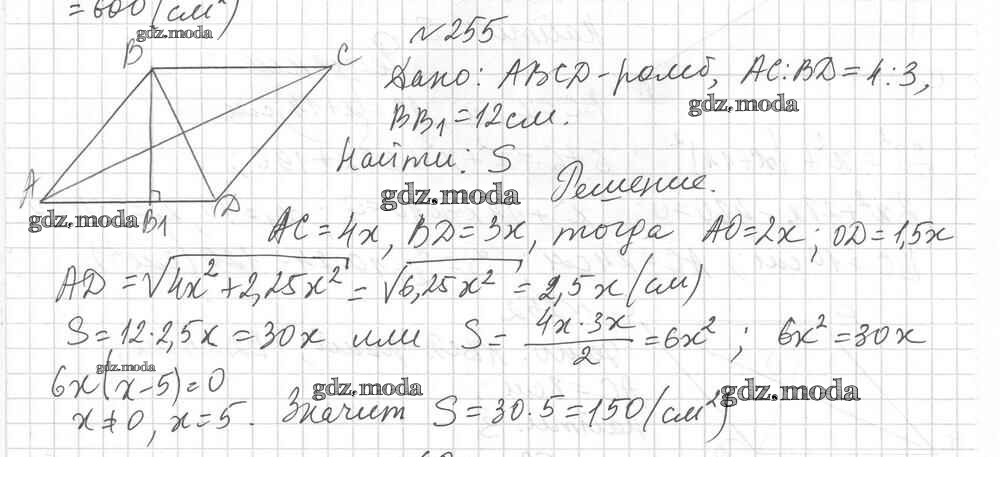 = 600 (см²)
gdz.moda
№255
B
C
Дано: ABCD - ромб, AC:BD = 4:3,
gdz.moda
BB₁ = 12 см.
Найти: S
A
gdz.moda
Решение.
D
gdz.moda
B1
AC = 4x, BD = 3x, тогда AO = 2x; OD = 1,5x
AD = √4x² + 2,25x² = √6,25x² = 2,5x (см)
S = 12·2,5x = 30x или S = 4x·3x/2 = 6x²; 6x² = 30x
gdz.moda
6x(x-5) = 0
gdz.moda
gdz.moda
x ≠ 0, x = 5. Значит S = 30·5 = 150 (см²)